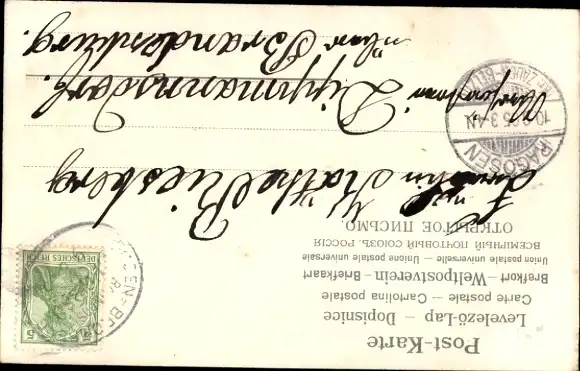 Post-Karte
Levelező-Lap – Dopisnice
Carte postale – Cartolina postale
Brefkort – Weltpostverein – Briefkaart
Union postale universelle – Unione postale universale
ВСЕМІРНЫЙ ПОЧТОВЫЙ СОЮЗЪ. РОССІЯ
ОТКРЫТОЕ ПИСЬМО.
Fräulein Käthe Riesberg
Dippmannsdorf.
über Brandenburg.
RAGOSEN
3-4N
DEUTSCHES REICH
5